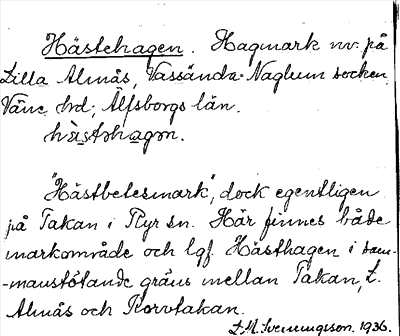 Hästehagen. Hagmark nv. på
Lilla Almås, Vassända-Naglum socken
Väne hd; Älfsborgs län.
hàstəhagən.
"Hästbetesmark", dock egentligen
på Takan i Ryr sn. Här finnes både
markområde och lgf. Hästhagen i sam-
-manstötande gräns mellan Takan, L.
Almås och Korvtakan.
L.M. Svenungsson. 1936.